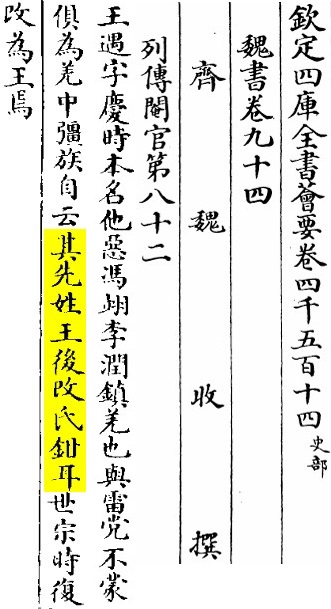 欽定四庫全書薈要卷四千五百十四史部
魏書卷九十四
齊魏收撰
列傳閹官第八十二
王遇字慶時本名他惡馮翊李潤鎮羌也與雷党不蒙
俱為羌中彊族自云其先姓王後改氏鉗耳世宗時復
改為王焉